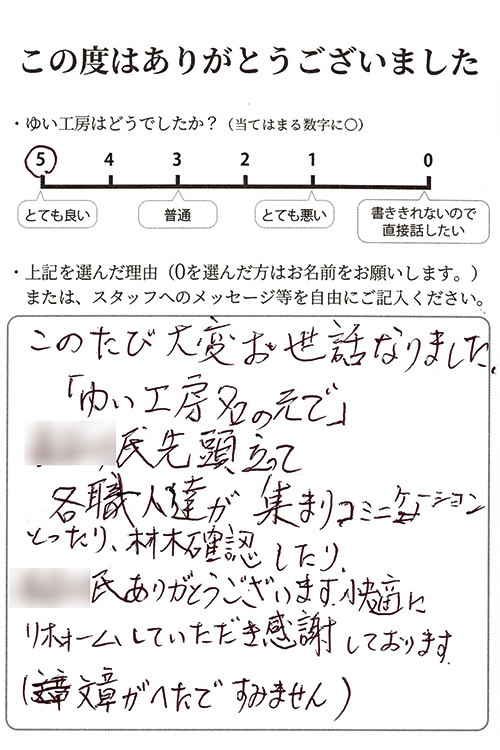 この度はありがとうございました
・ゆい工房はどうでしたか？（当てはまる数字に〇）
5 4 3 2 1 0
とても良い 普通 とても悪い 書ききれないので
直接話したい
・上記を選んだ理由（0を選んだ方はお名前をお願いします。）
または、スタッフへのメッセージ等を自由にご記入ください。
このたび大変お世話なりました.
「ゆい工房名の元で」
氏先頭立って
各職人達が集まりコミニケーション
とったり、材木確認したり.
氏ありがとうございます.快適に
リホームしていただき感謝しております.
(文章がへたですみません)